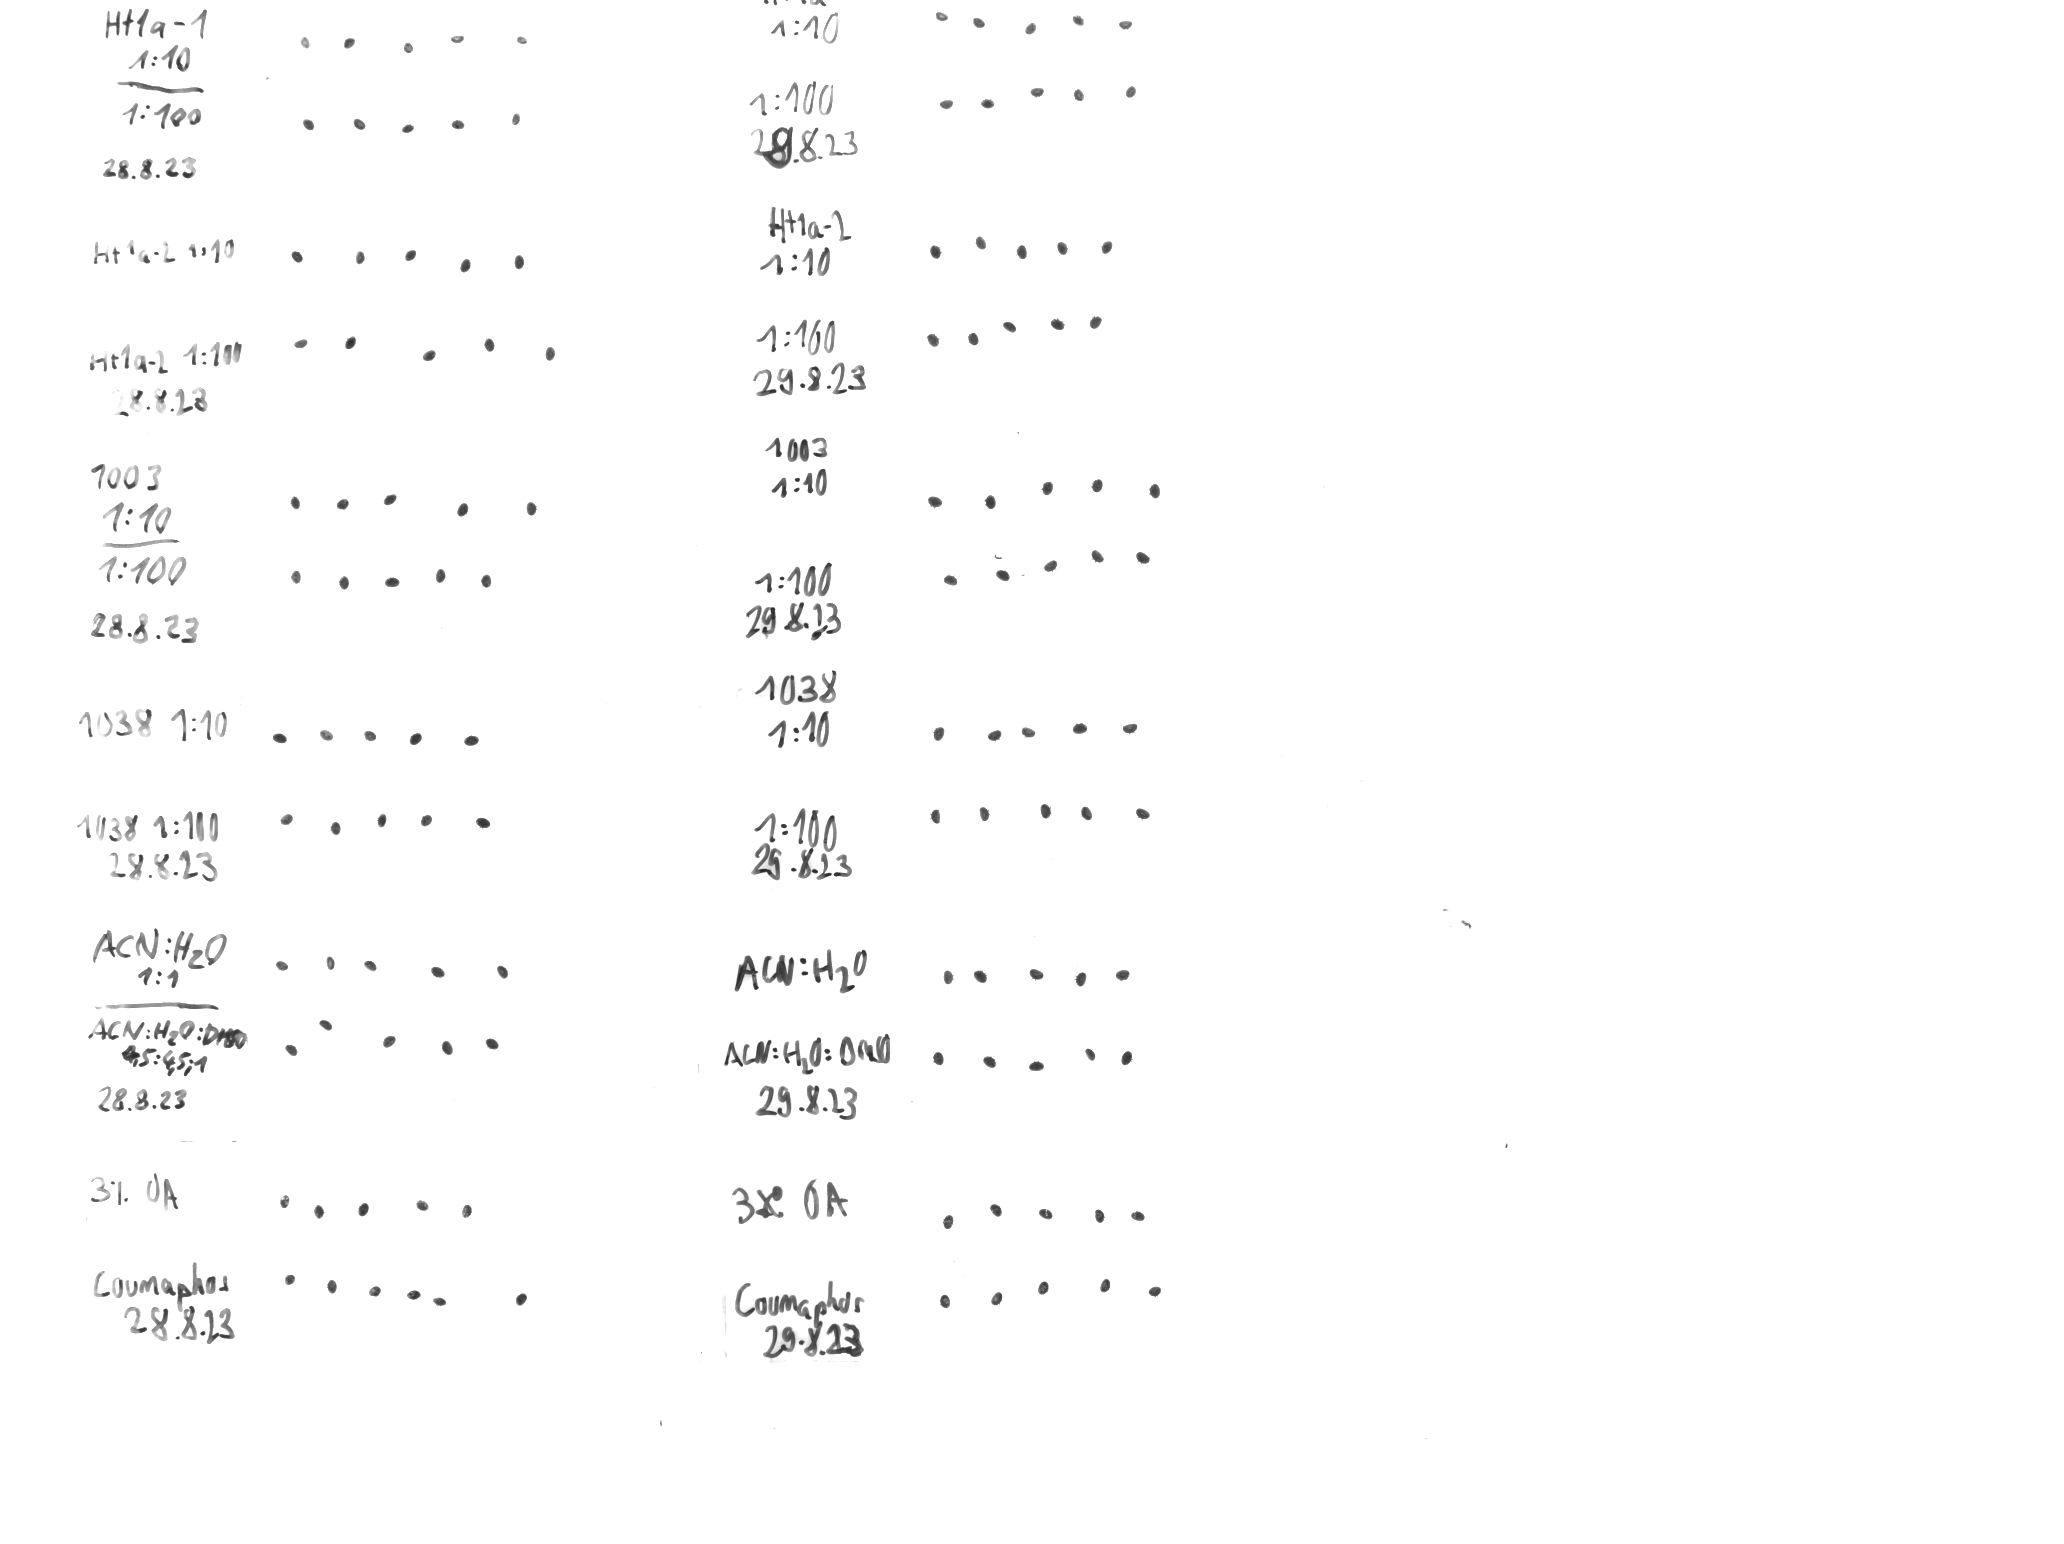 Ht1a-1
1:10
1:100
28.8.23
Ht1a-2 1:10
Ht1a-2 1:100
28.8.23
1003
1:10
1:100
28.8.23
1038 1:10
1038 1:100
28.8.23
ACN:H2O
1:1
ACN:H2O:DMSO
4,5:4,5:1
28.8.23
3% OA
Coumaphos
28.8.23
1:10
1:100
29.8.23
Ht1a-2
1:10
1:100
29.8.23
1003
1:10
1:100
29.8.23
1038
1:10
1:100
29.8.23
ACN:H2O
ACN:H2O:DMSO
29.8.23
3% OA
Coumaphos
29.8.23